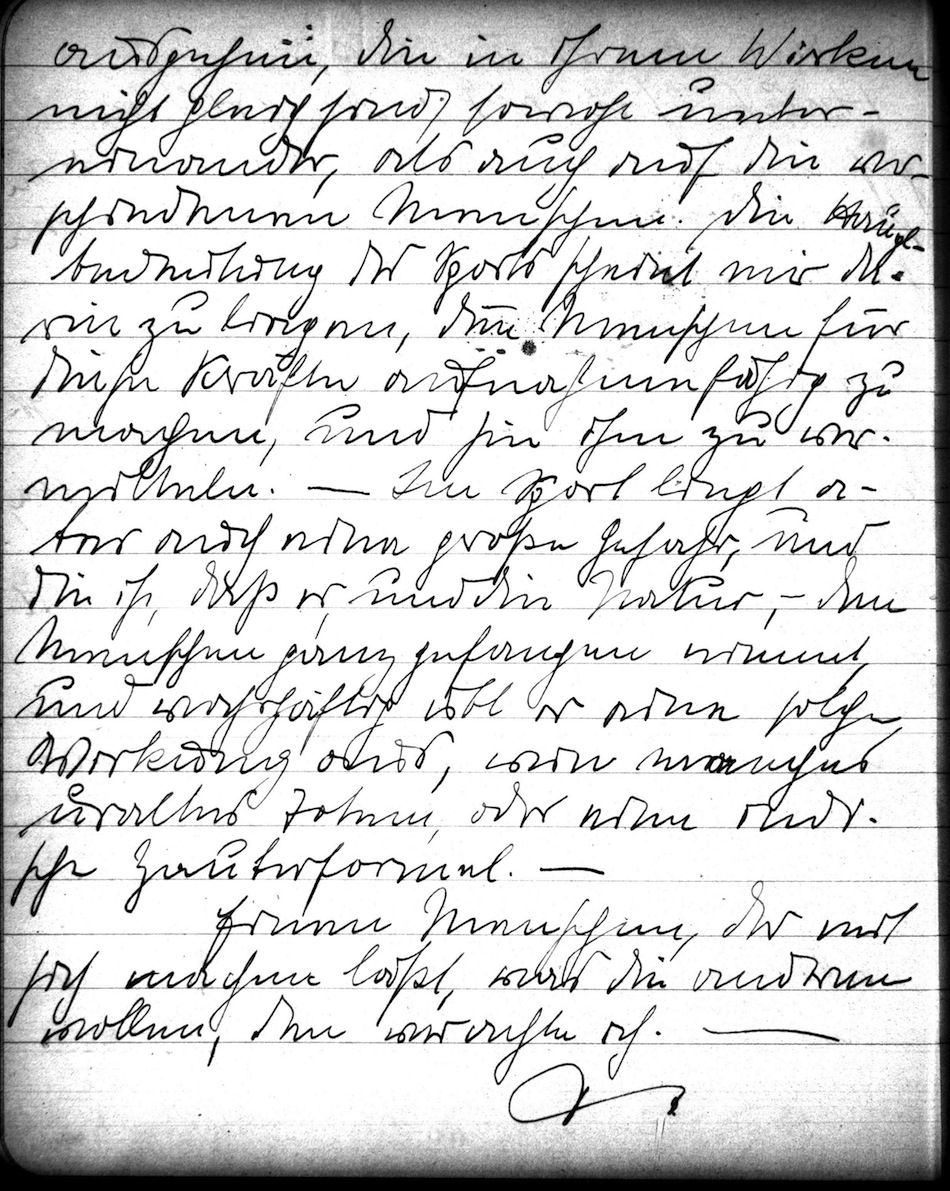 ausgehen, die in ihrem Wirken
nicht gleich sind, sowohl unter-
einander, als auch auf die ver-
schiedenen Menschen. Die Haupt-
bedeutung des Sports scheint mir da-
rin zu liegen, den Menschen für
diese Kräfte aufnahmefähig zu
machen, und sie ihm zu ver-
mitteln. — Im Sport liegt a-
ber auch eine große Gefahr, und
die ist, daß er, und die Natur, – den
Menschen ganz gefangen nimmt,
und wahrhaftig übt er eine solche
Wirkung aus, wie manches
uraltes Totem, oder eine indi-
sche Zauberformel. —
Einen Menschen, der mit
sich machen läßt, was die anderen
wollen, den verachte ich. —